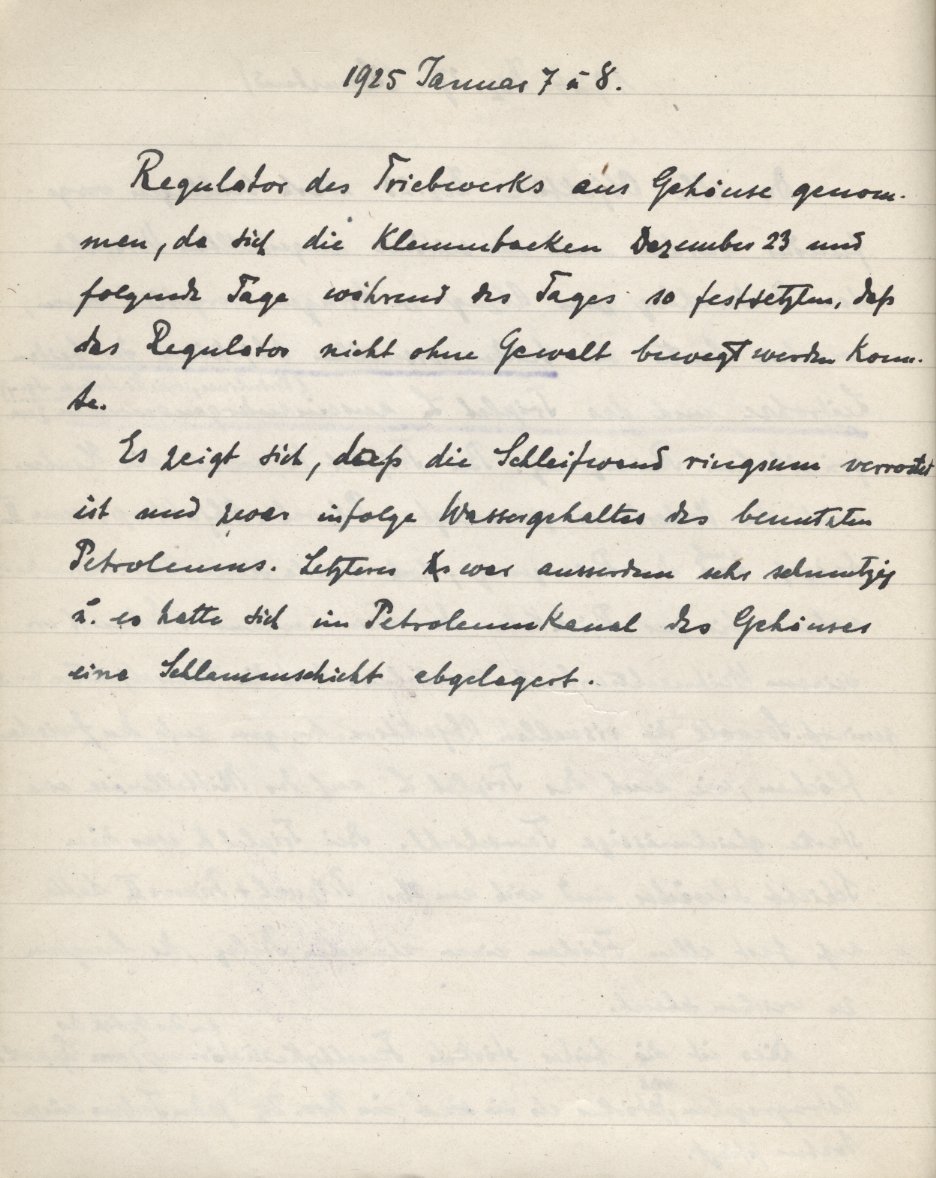 1925 Januar 7 u 8.
Regulator des Triebwerks aus Gehäuse genom-
men, da sich die Klemmbacken Dezember 23 und
folgende Tage während des Tages so festsetzten, daß
das Regulator nicht ohne Gewalt bewegt werden konn-
te.
Es zeigt sich, daß die Schleifwand ringsum verrostet
ist und zwar infolge Wassergehaltes des benutzten
Petroleums. Letzteres war ausserdem sehr schmutzig
u. es hatte sich im Petroleumkanal des Gehäuses
eine Schlammschicht abgelagert.